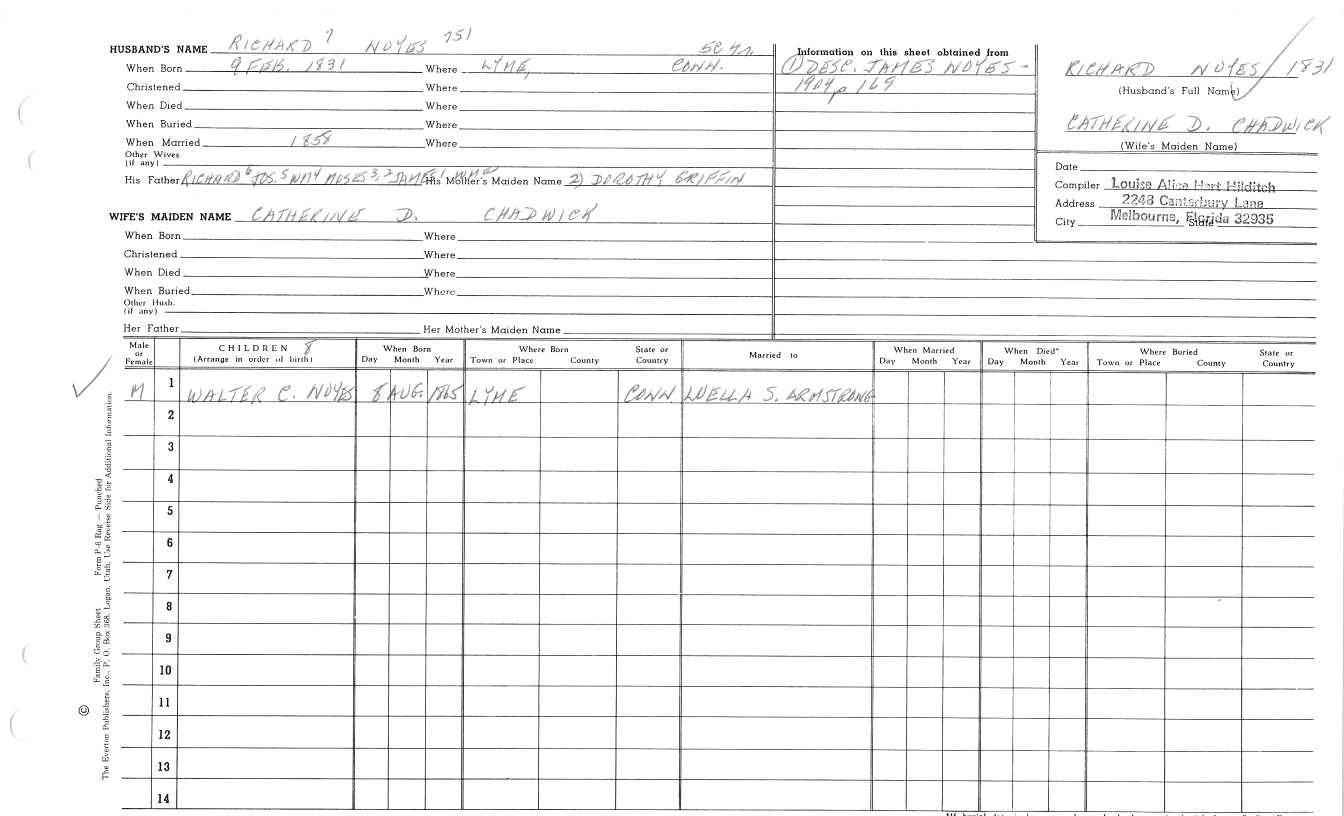 HUSBAND'S NAME RICHARD 7 NOYES 751
When Born 9 FEB. 1831 Where LYME, CONN.
Christened Where
When Died Where
When Buried Where
When Married 1858 Where
Other Wives
(if any)
His Father RICHARD 6 JOS. 5 WM 4 MOSES 3, 2 JAMES 1 His Mother's Maiden Name 2) DOROTHY GRIFFIN
WIFE'S MAIDEN NAME CATHERINE D. CHADWICK
When Born Where
Christened Where
When Died Where
When Buried Where
Other Husb.
(if any)
Her Father Her Mother's Maiden Name
Information on this sheet obtained from
① DESC. JAMES NOYES -
1904 p 169
RICHARD NOYES / 1831
(Husband's Full Name)
CATHERINE D. CHADWICK
(Wife's Maiden Name)
Date
Compiler Louise Alice Hart Hilditch
Address 2248 Canterbury Lane
City Melbourne, Florida 32935 State
Male or Female CHILDREN 8 (Arrange in order of birth) When Born Day Month Year Where Born Town or Place County State or Country Married to When Married Day Month Year When Died* Day Month Year Where Buried Town or Place County State or Country
M 1 WALTER C. NOYES 8 AUG. 1865 LYME CONN LUELLA S. ARMSTRONG
2
3
4
5
6
7
8
9
10
11
12
13
14
© Family Group Sheet Form P-6 Rag — Punched
The Everton Publishers, Inc., P. O. Box 368, Logan, Utah. Use Reverse Side for Additional Information.